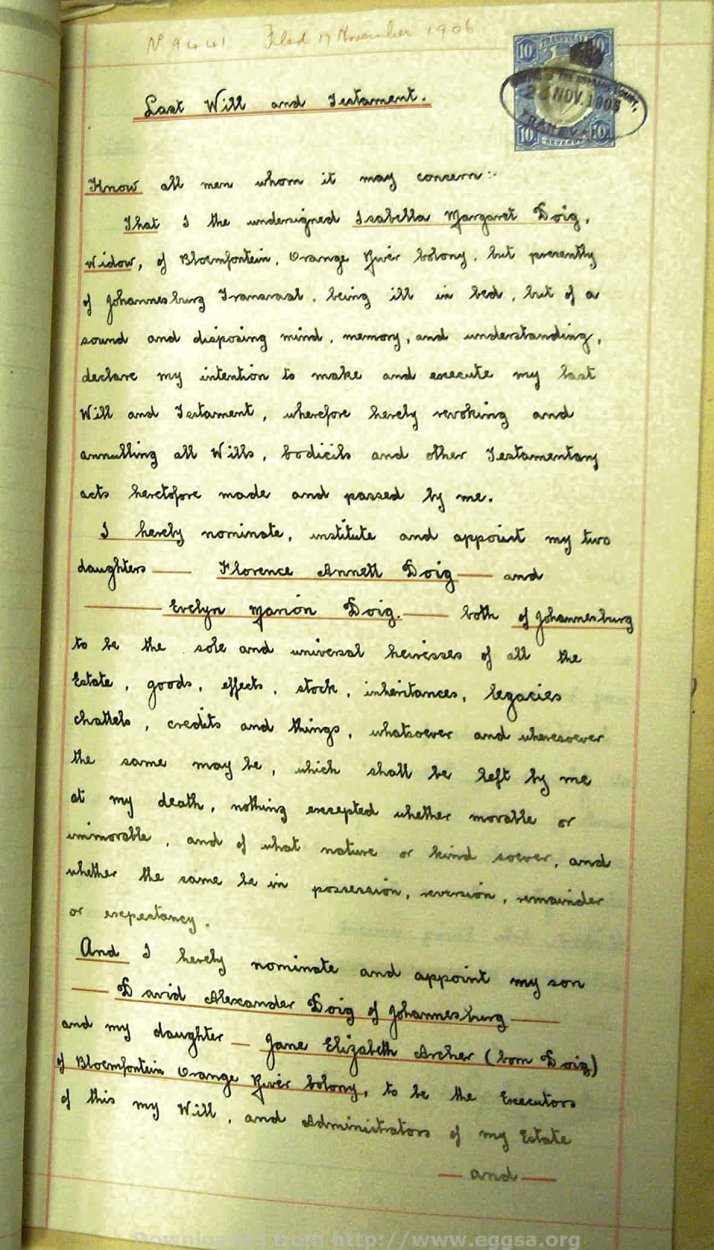 No 9441 Filed 17 November 1906
10 TRANSVAAL 10
2 NOV. 1906
10 REVENUE 10
Last Will and Testament.
Know all men whom it may concern:-
That I the undersigned Isabella Margaret Doig,
Widow, of Bloemfontein, Orange River Colony, but presently
of Johannesburg Transvaal, being ill in bed, but of a
sound and disposing mind, memory, and understanding,
declare my intention to make and execute my last
Will and Testament, wherefore hereby revoking and
annulling all Wills, Codicils and other Testamentary
acts heretofore made and passed by me.
I hereby nominate, institute and appoint my two
daughters — Florence Annett Doig — and
— Evelyn Marion Doig. — both of Johannesburg
to be the sole and universal heiresses of all the
Estate, goods, effects, stock, inheritances, legacies
chattels, credits and things, whatsoever and wheresoever
the same may be, which shall be left by me
at my death, nothing excepted whether movable or
immovable, and of what nature or kind soever, and
whether the same be in possession, reversion, remainder
or expectancy.
And I hereby nominate and appoint my son
— David Alexander Doig of Johannesburg —
and my daughter — Jane Elizabeth Archer (born Doig)
of Bloemfontein Orange River Colony, to be the Executors
of this my Will, and Administrators of my Estate
— and —
Downloaded from http://www.eggsa.org